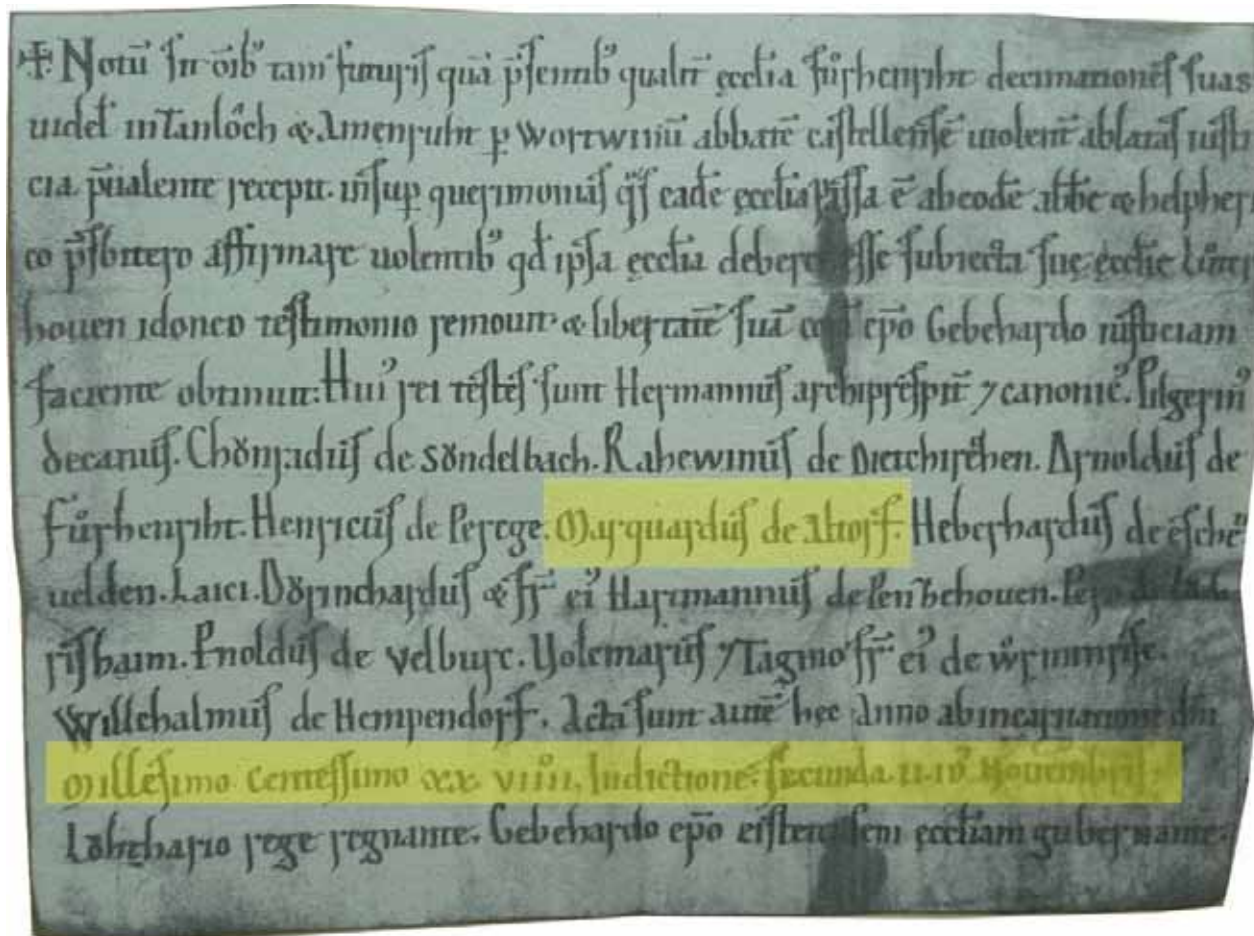 ✝ Notū sit oīb' tam futuris quā p̄sentib' qualit̄ ęcclia fůrhenriht decimationes suas
uidel in Tanlôch & Amenruht p̱ Wortwinū abbatē castellensē uiolent̄ ablatas iusti
cia p̄ualente recepit. insup̱ querimoniis q̄s eadē ęcclia passa ē abeodē abbe & helpheri
co p̄sbitero affirmare uolentib' qd ipsa ęcclia deberet esse subiecta suę ęcclie
houen idoneo testimonio remouit & libertatē suā ep̄o Gebehardo iusticiam
faciente obtinuit. Hui' rei testes sunt Hermannus archipresp̄it 7 canonic'. Pilgerin'
decanus. Chŏnradus de sŏndelbach. Rahewinus de Dietchirchen. Arnoldus de
Fůrhenriht. Henricus de Perege. Marquardus de Altorf. Heberhardus de eschē
uelden. Laici. Dŏrinchardus & fr̄ ei' Hartmannus de Penzehouen. Pero de
rishaim. Ernoldus de Velburc. Uolcmarus 7 Tagmo fr̄ ei' de
Willehalmus de Hempendorf. Acta sunt autē hec Anno ab incarnatione dn̄i
Millesimo Centessimo xx viiii. Indictione secunda. Nouembris.
Lŏthehario rege regnante. Gebehardo ep̄o eistetensem ęccliam gubernante.